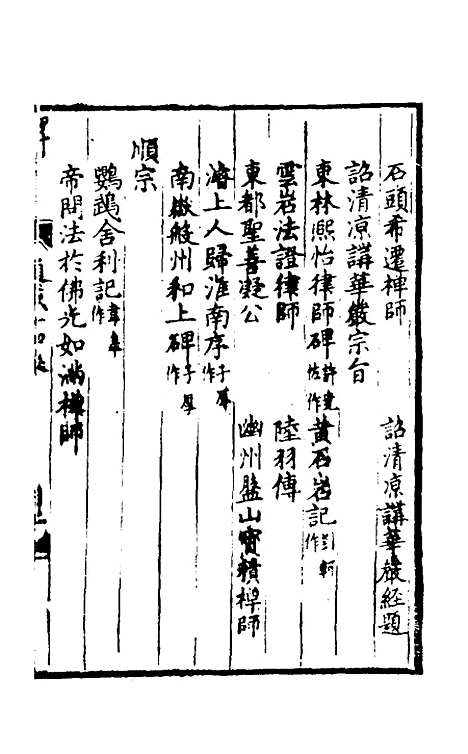 石頭希遷禪師　詔清凉講華嚴經題
詔清凉講華嚴宗旨
東林熙怡律師碑許堯佐作　黃石岩記劉軻作
雲岩法證律師　陸羽傳
東都聖善凝公　幽州盤山寶積禪師
濬上人歸淮南序子厚作
南嶽般州和上碑子厚作
順宗
鸚鵡舍利記韋皋作
帝問法於佛光如滿禪師